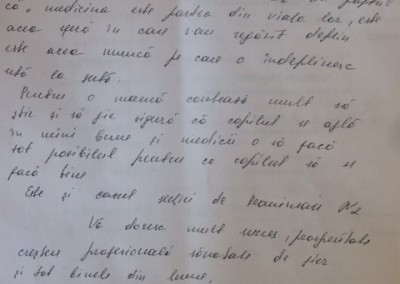 că, medicina este partea din viața lor, este
acea sferă în care s-au regăsit deplin
este acea muncă pe care o îndeplinesc
sută la sută.
Pentru o mamă contează mult să
știe și să fie sigură că copilul se află
în mîini bune și medicii o să facă
tot posibilul pentru ca copilul să se
facă bine
Este și cazul secției de Reanimare N2
Vă doresc mult succes, prosperitate
creștere profesională sănătate de fier
și tot binele din lume.